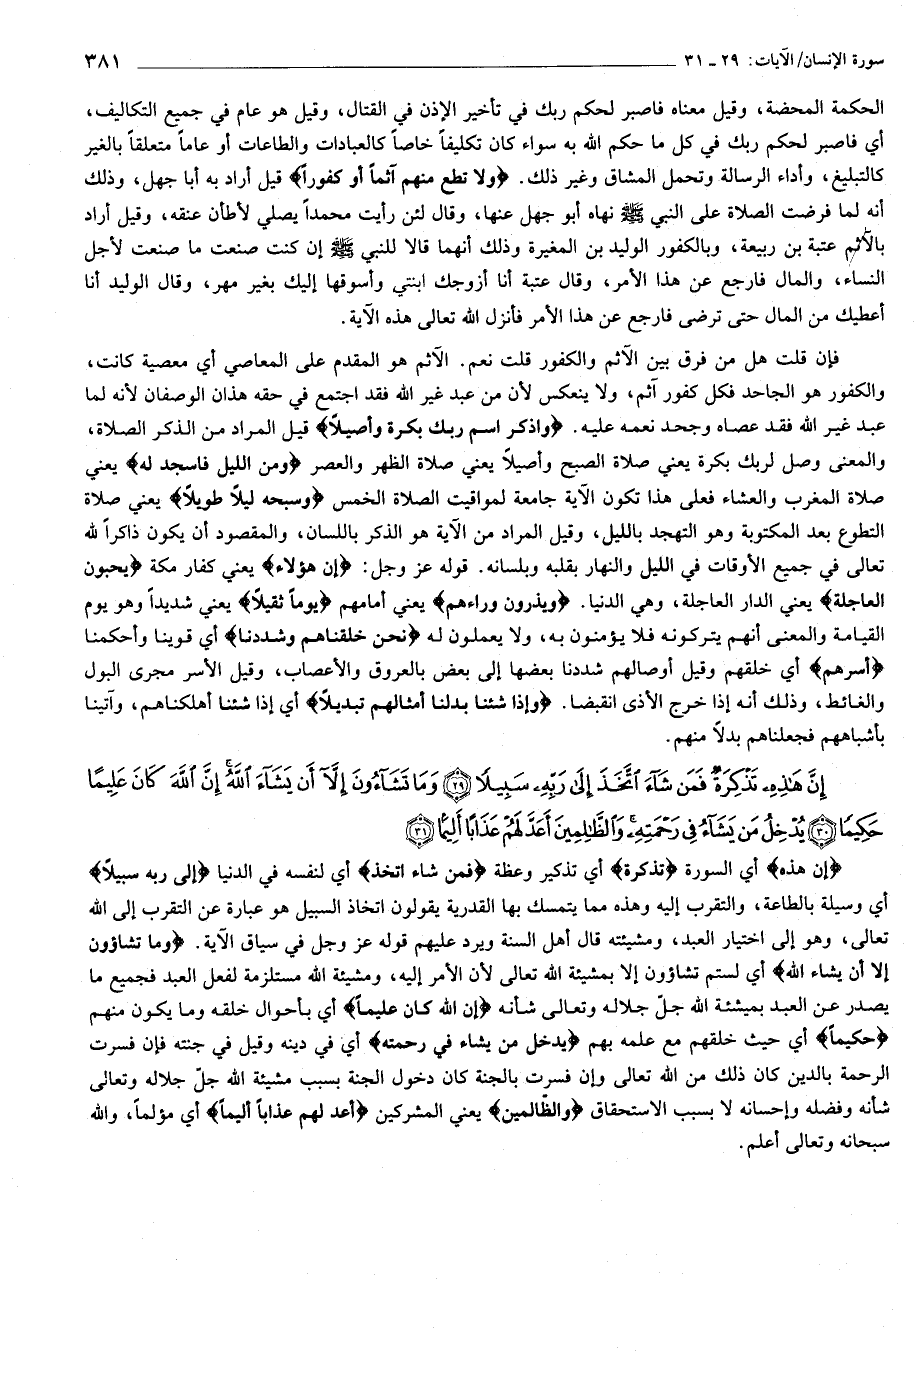 سورة الإنسان/ الآيات: ٢٩ ـ ٣١ ٣٨١
الحكمة المحضة، وقيل معناه فاصبر لحكم ربك في تأخير الإذن في القتال، وقيل هو عام في جميع التكاليف،
أي فاصبر لحكم ربك في كل ما حكم الله به سواء كان تكليفاً خاصاً كالعبادات والطاعات أو عاماً متعلقاً بالغير
كالتبليغ، وأداء الرسالة وتحمل المشاق وغير ذلك. ﴿ولا تطع منهم آثماً أو كفوراً﴾ قيل أراد به أبا جهل، وذلك
أنه لما فرضت الصلاة على النبي ﷺ نهاه أبو جهل عنها، وقال لئن رأيت محمداً يصلي لأطأن عنقه، وقيل أراد
بالآثم عتبة بن ربيعة، وبالكفور الوليد بن المغيرة وذلك أنهما قالا للنبي ﷺ إن كنت صنعت ما صنعت لأجل
النساء، والمال فارجع عن هذا الأمر، وقال عتبة أنا أزوجك ابنتي وأسوقها إليك بغير مهر، وقال الوليد أنا
أعطيك من المال حتى ترضى فارجع عن هذا الأمر فأنزل الله تعالى هذه الآية.
فإن قلت هل من فرق بين الآثم والكفور قلت نعم. الآثم هو المقدم على المعاصي أي معصية كانت،
والكفور هو الجاحد فكل كفور آثم، ولا ينعكس لأن من عبد غير الله فقد اجتمع في حقه هذان الوصفان لأنه لما
عبد غير الله فقد عصاه وجحد نعمه عليه. ﴿واذكر اسم ربك بكرة وأصيلاً﴾ قيل المراد من الذكر الصلاة،
والمعنى وصل لربك بكرة يعني صلاة الصبح وأصيلاً يعني صلاة الظهر والعصر ﴿ومن الليل فاسجد له﴾ يعني
صلاة المغرب والعشاء فعلى هذا تكون الآية جامعة لمواقيت الصلاة الخمس ﴿وسبحه ليلاً طويلاً﴾ يعني صلاة
التطوع بعد المكتوبة وهو التهجد بالليل، وقيل المراد من الآية هو الذكر باللسان، والمقصود أن يكون ذاكراً لله
تعالى في جميع الأوقات في الليل والنهار بقلبه وبلسانه. قوله عز وجل: ﴿إن هؤلاء﴾ يعني كفار مكة ﴿يحبون
العاجلة﴾ يعني الدار العاجلة، وهي الدنيا. ﴿ويذرون وراءهم﴾ يعني أمامهم ﴿يوماً ثقيلاً﴾ يعني شديداً وهو يوم
القيامة والمعنى أنهم يتركونه فلا يؤمنون به، ولا يعملون له ﴿نحن خلقناهم وشددنا﴾ أي قوينا وأحكمنا
﴿أسرهم﴾ أي خلقهم وقيل أوصالهم شددنا بعضها إلى بعض بالعروق والأعصاب، وقيل الأسر مجرى البول
والغائط، وذلك أنه إذا خرج الأذى انقبضا. ﴿وإذا شئنا بدلنا أمثالهم تبديلاً﴾ أي إذا شئنا أهلكناهم، وآتينا
بأشباههم فجعلناهم بدلاً منهم.
إِنَّ هَٰذِهِۦ تَذْكِرَةٌ ۖ فَمَن شَآءَ ٱتَّخَذَ إِلَىٰ رَبِّهِۦ سَبِيلًا ﴿٢٩﴾ وَمَا تَشَآءُونَ إِلَّآ أَن يَشَآءَ ٱللَّهُ ۚ إِنَّ ٱللَّهَ كَانَ عَلِيمًا
حَكِيمًا ﴿٣٠﴾ يُدْخِلُ مَن يَشَآءُ فِى رَحْمَتِهِۦ ۚ وَٱلظَّٰلِمِينَ أَعَدَّ لَهُمْ عَذَابًا أَلِيمًا ﴿٣١﴾
﴿إن هذه﴾ أي السورة ﴿تذكرة﴾ أي تذكير وعظة ﴿فمن شاء اتخذ﴾ أي لنفسه في الدنيا ﴿إلى ربه سبيلاً﴾
أي وسيلة بالطاعة، والتقرب إليه وهذه مما يتمسك بها القدرية يقولون اتخاذ السبيل هو عبارة عن التقرب إلى الله
تعالى، وهو إلى اختيار العبد، ومشيئته قال أهل السنة ويرد عليهم قوله عز وجل في سياق الآية. ﴿وما تشاؤون
إلا أن يشاء الله﴾ أي لستم تشاؤون إلا بمشيئة الله تعالى لأن الأمر إليه، ومشيئة الله مستلزمة لفعل العبد فجميع ما
يصدر عن العبد بميشئة الله جلّ جلاله وتعالى شأنه ﴿إن الله كان عليماً﴾ أي بأحوال خلقه وما يكون منهم
﴿حكيماً﴾ أي حيث خلقهم مع علمه بهم ﴿يدخل من يشاء في رحمته﴾ أي في دينه وقيل في جنته فإن فسرت
الرحمة بالدين كان ذلك من الله تعالى وإن فسرت بالجنة كان دخول الجنة بسبب مشيئة الله جلّ جلاله وتعالى
شأنه وفضله وإحسانه لا بسبب الاستحقاق ﴿والظّالمين﴾ يعني المشركين ﴿أعد لهم عذاباً أليماً﴾ أي مؤلماً، والله
سبحانه وتعالى أعلم.